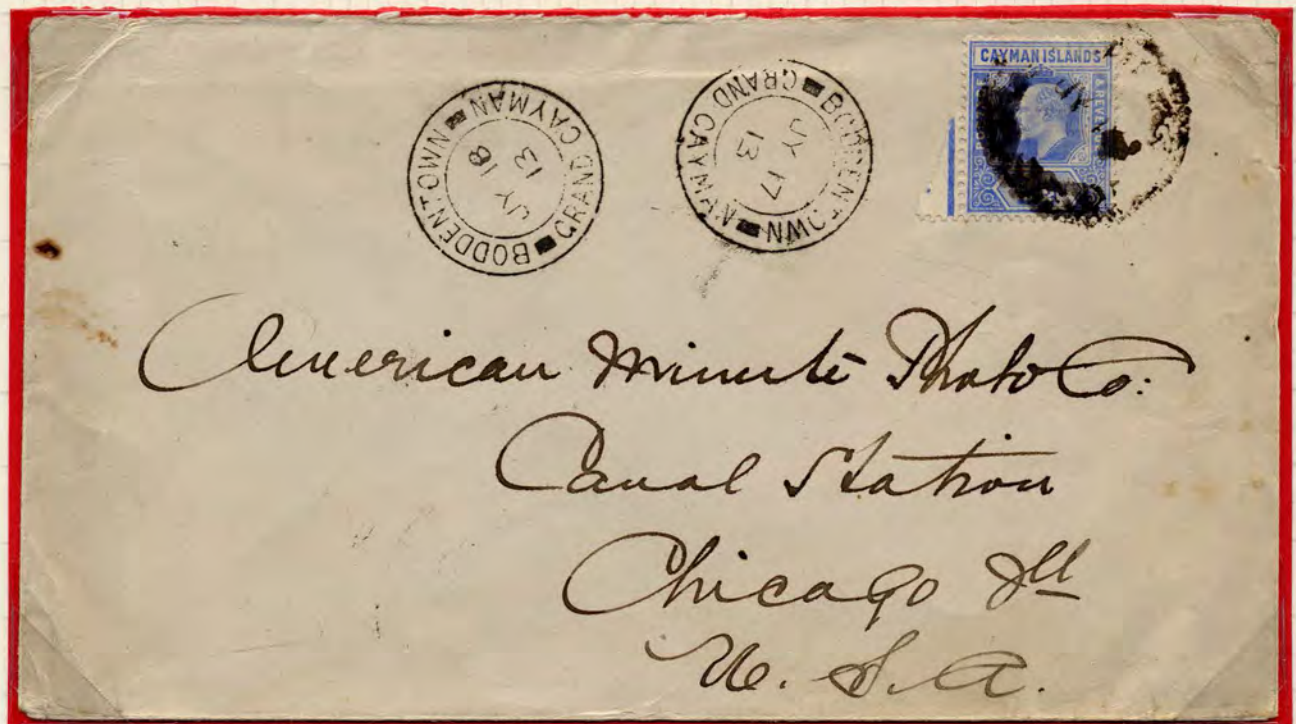 BODDENTOWN GRAND CAYMAN
JY 18
13
BODDENTOWN GRAND CAYMAN
JY 17
13
CAYMAN ISLANDS
American Minute Photo Co:
Canal Station
Chicago Ill
U. S. A.